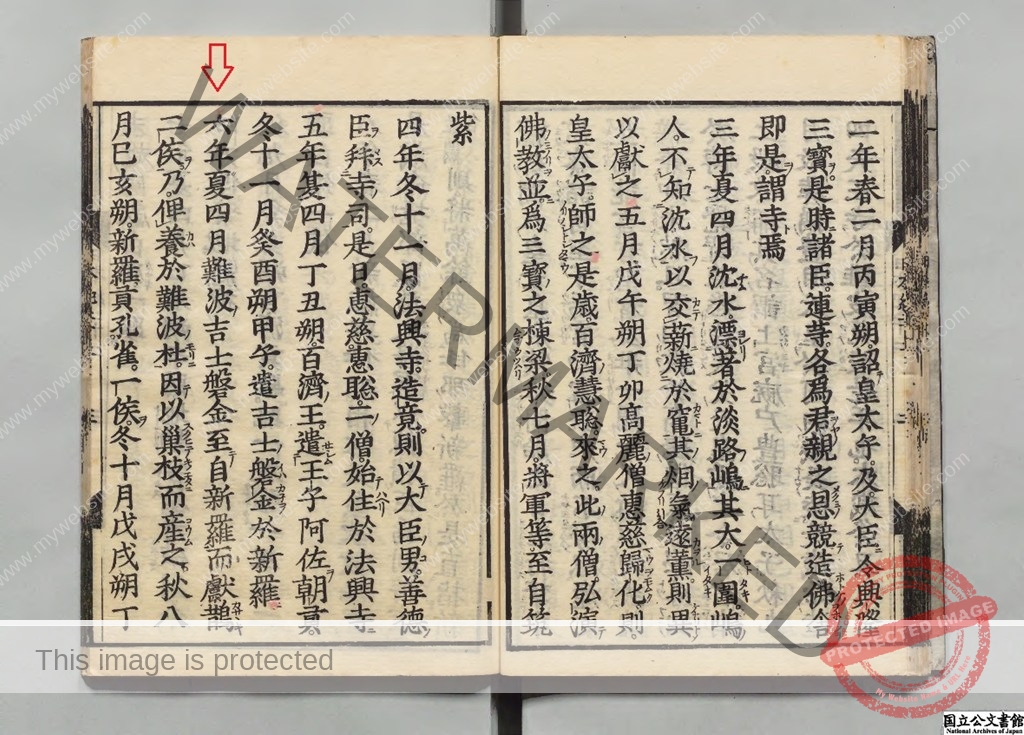 二年春二月丙寅朔詔皇太子及大臣令興隆
三寳是時諸臣連等各爲君親之恩競造佛舎
即是謂寺焉
三年夏四月沈水漂著於淡路嶋其大一圍嶋
人不知沈水以交薪燒於竈其烟氣遠薫則異
以獻之五月戊午朔丁卯高麗僧恵慈歸化則
皇太子師之是歳百濟慧聡來之此兩僧弘演
佛教並爲三寳之棟梁秋七月將軍等至自筑
紫
四年冬十一月法興寺造竟則以大臣男善德
臣拜寺司是日恵慈恵聡二僧始住於法興寺
五年夏四月丁丑朔百濟王遣王子阿佐朝貢
冬十一月癸酉朔甲午遣吉士磐金於新羅
六年夏四月難波吉士磐金至自新羅而獻鵲
二俟乃俾養於難波杜因以巢枝而産之秋八
月己亥朔新羅貢孔雀一俟冬十月戊戌朔丁
WATERMARKED
www.mywebsite.com
PROTECTED IMAGE
My Website Name & URL Here
This image is protected
国立公文書館
National Archives of Japan